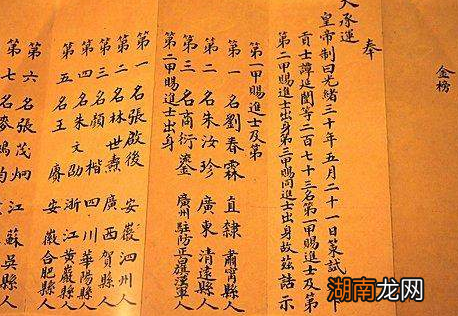 金榜
奉
天承運
皇帝制曰光緒三十年五月二十一日策試
貢士譚延闓等二百七十三名第一甲賜進士及第
第二甲賜進士出身第三甲賜同進士出身故茲誥示
第一甲賜進士及第
第一名劉春霖 直隸 肅寧縣人
第二名朱汝珍 廣東 清遠縣人
第三名商衍鎏 廣州駐防正旗漢軍人
第二甲賜進士出身
第一名張啟後 安徽泗州人
第二名林世燾 廣西賀縣人
第三名顏楷 四川華陽縣人
第四名朱文劭 浙江黃巖縣人
第五名王賡 安徽合肥縣人
第六名張茂炯 江蘇吳縣人
第七名麥鴻鈞
湖南龙网